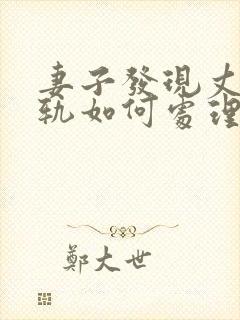 妻子發現丈
軌如何處理
鄭大世